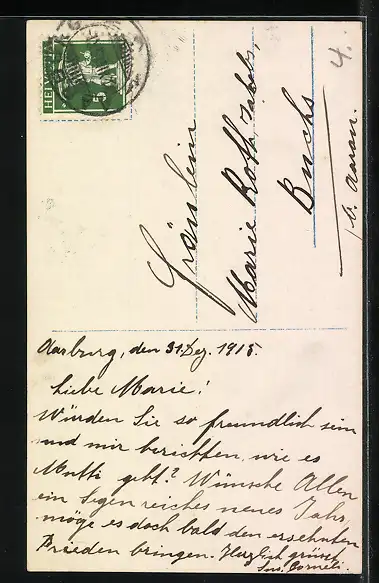 HELVETIA
5
4.
Fräulein
Marie Roth, Jakobs,
Buchs
b. Aarau.
Aarburg, den 31. Dez. 1915.
Liebe Marie!
Würden Sie so freundlich sein
und mir berichten, wie es
Mutti geht? Wünsche Allen
ein segenreiches neues Jahr,
möge es doch bald den ersehnten
Frieden bringen. Herzlich grüsst
Corneli.